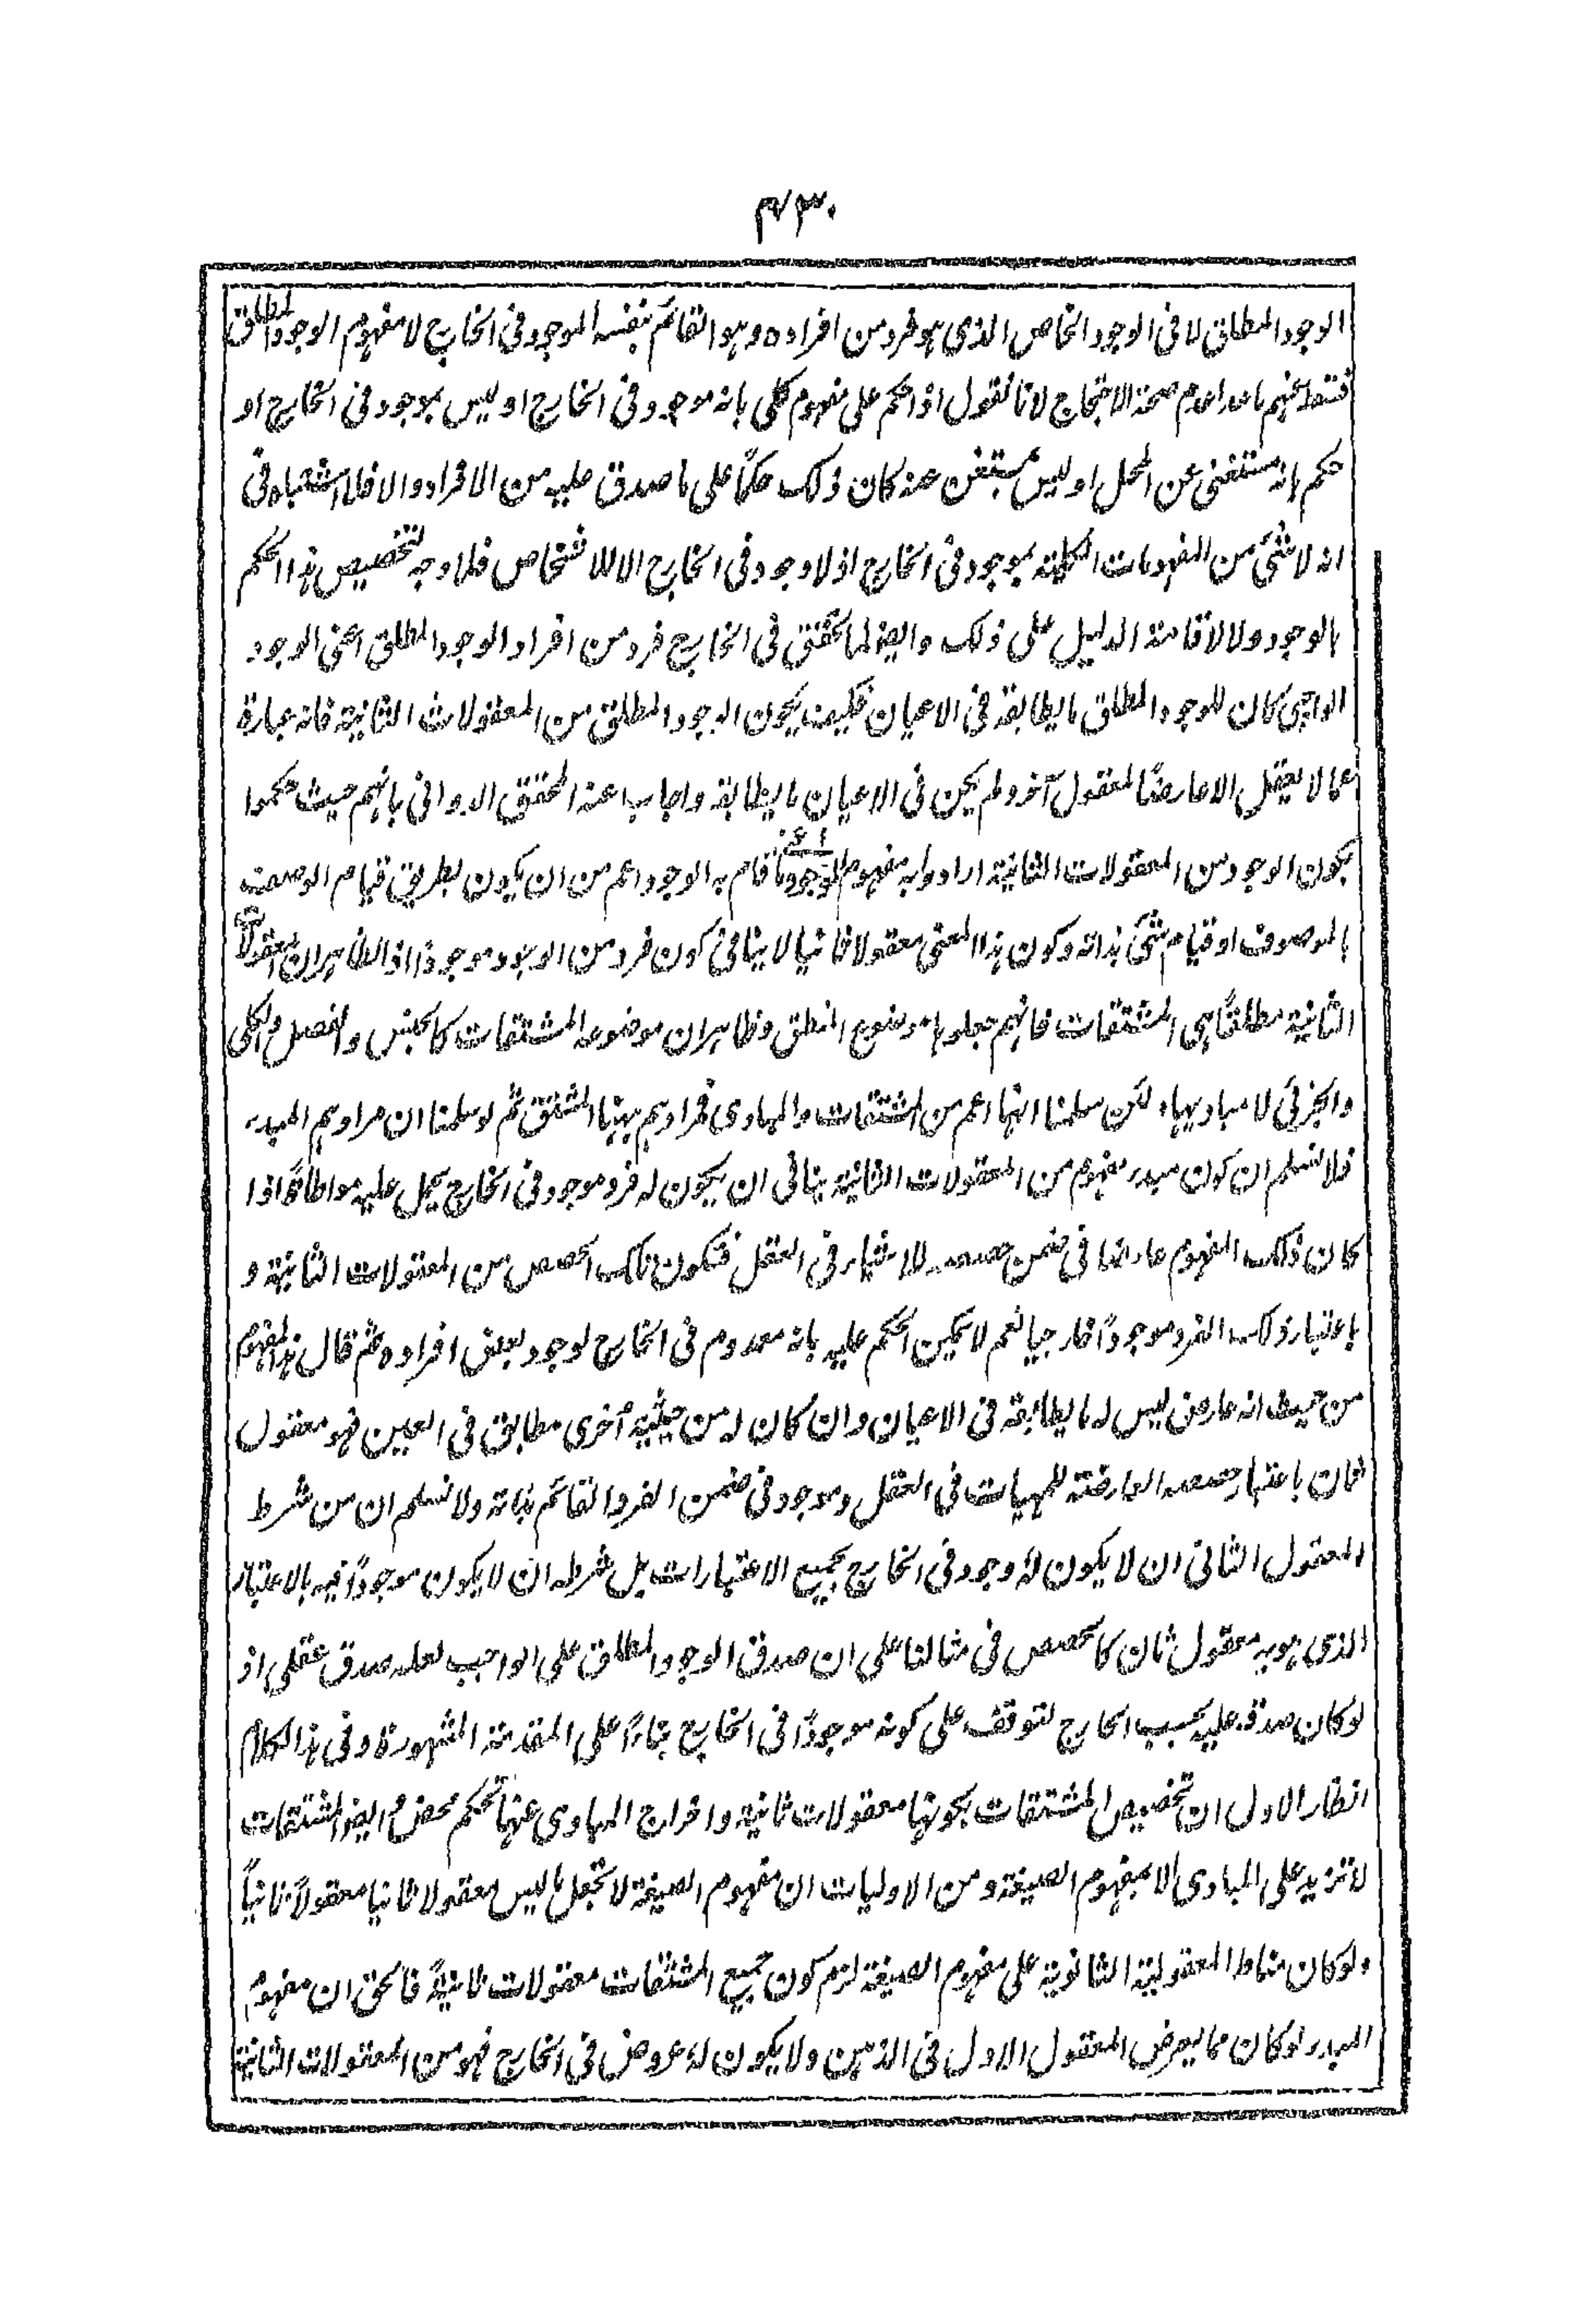 ٤٣٠
الوجود المطلق لا فى الوجود الخاص الذى هو فرد من افراده وهو القائم بنفسه الموجود فى الخارج لا مفهوم الوجود المطلق
صحة الاحتجاج لانا نقول اذا حكم على مفهوم كلى بانه موجود فى الخارج او ليس بموجود فى الخارج او
حكم بانه مستغنى عن المحل او ليس بمستغن عنه كان ذلك حكماً على ما صدق عليه من الافراد والا فلا اشتباه فى
انه لا شئ من المفهومات الكلية بموجود فى الخارج اذ لا وجود فى الخارج الا للاشخاص فلا وجه لتخصيص هذا الحكم
بالوجود ولا لاقامة الدليل على ذلك وايضا لما تحقق فى الخارج فرد من افراد الوجود المطلق اعنى الوجود
الواجبى كان للوجود المطلق ما يطابقه فى الاعيان فكيف يكون الوجود المطلق من المعقولات الثانية فانه عبارة
عما لا يعقل الا عارضاً لمعقول آخر ولم يكن فى الاعيان ما يطابقه واجاب عنه المحقق الدوانى بانهم حيث حكموا
بكون الوجود من المعقولات الثانية ارادوا به مفهوم الموجود اى ما قام به الوجود اعم من ان يكون بطريق قيام الوصف
بالموصوف او قيام شئ بذاته وكون هذا المعنى معقولا ثانيا لا ينافى كون فرد من الوجود موجوداً اذ الظاهر ان المعقولات
الثانية مطلقاً هى المشتقات فانهم جعلوها موضوع المنطق وظاهر ان موضوعه المشتقات كالجنس والفصل والكلى
والجزئى لا مباديها ولكن سلمنا انها اعم من المشتقات والمبادى فمرادهم ههنا المشتق ثم لو سلمنا ان مرادهم المبدء
فلا نسلم ان كون مبدء مفهوم من المعقولات الثانية ينافى ان يكون له فرد موجود فى الخارج يحمل عليه مواطاة اذا
كان ذلك المفهوم عارضا فى ضمن حصصه للاشياء فى العقل فتكون تلك الحصص من المعقولات الثانية و
باعتبار ذلك الفرد موجوداً خارجيا نعم لا يمكن الحكم عليه بانه معدوم فى الخارج لوجود بعض افراده ثم قال هذا المفهوم
من حيث انه عارض ليس له ما يطابقه فى الاعيان وان كان له من حيثية أخرى مطابق فى العين فهو معقول
ثان باعتبار حصصه العارضة للمهيات فى العقل وموجود فى ضمن الفرد القائم بذاته ولا نسلم ان من شرط
المعقول الثانى ان لا يكون له وجود فى الخارج بجميع الاعتبارات بل شرطه ان لا يكون موجوداً فيه بالاعتبار
الذى هو به معقول ثان كالحصص فى مثالنا على ان صدق الوجود المطلق على الواجب لعله صدق عقلى اذ
لو كان صدقه عليه بحسب الخارج لتوقف على كونه موجوداً فى الخارج بناءً على المقدمة المشهورة وفى هذا الكلام
انظار الاول ان تخصيص المشتقات بكونها معقولات ثانية واخراج المبادى عنها تحكم محض وايضا المشتقات
لا تزيد على المبادى الا بمفهوم الصيغة ومن الاوليات ان مفهوم الصيغة لا تجعل ما ليس معقولا ثانيا معقولاً ثانياً
ولو كان مناط المعقولية الثانوية على مفهوم الصيغة لزم كون جميع المشتقات معقولات ثانيةً فالحق ان مفهوم
المبدء لو كان مما يعرض المعقول الاول فى الذهن ولا يكون له عروض فى الخارج فهو من المعقولات الثانية